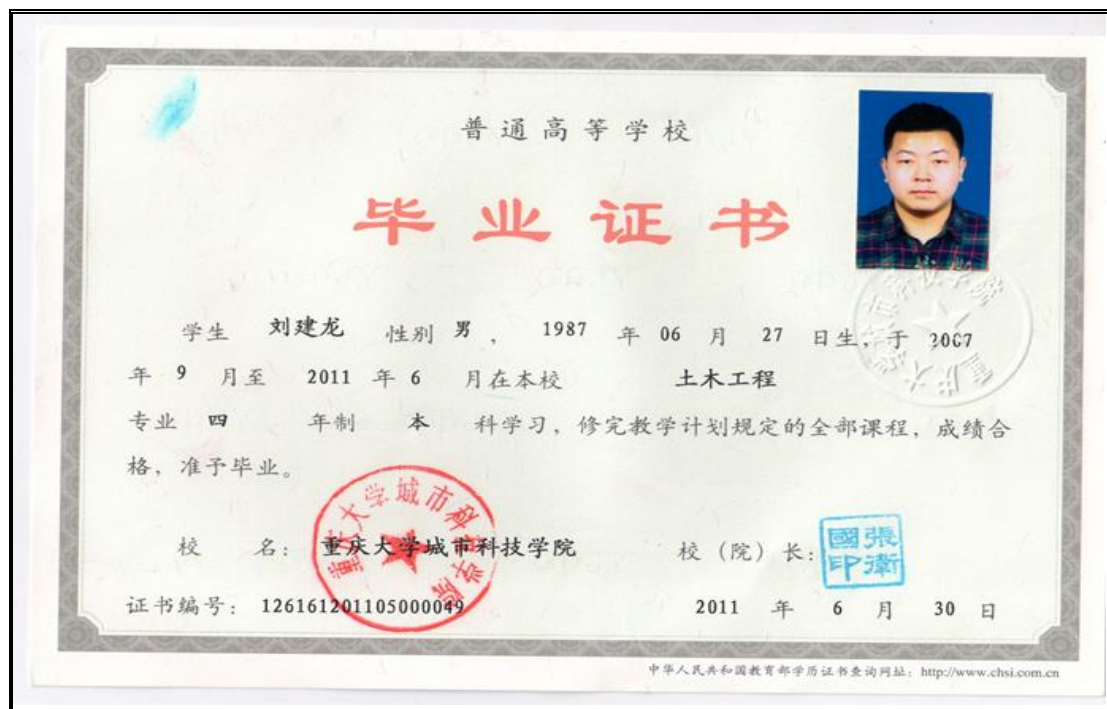 普通高等学校
毕业证书
学生 刘建龙 性别 男 , 1987 年 06 月 27 日生, 于 2007
年 9 月至 2011 年 6 月在本校 土木工程
专业 四 年制 本 科学习, 修完教学计划规定的全部课程, 成绩合
格, 准予毕业。
重庆大学城市科技学院
重庆大学城市科技学院
校 名: 重庆大学城市科技学院 校 (院) 长: 張衛國印
证书编号: 126161201105000049 2011 年 6 月 30 日
中华人民共和国教育部学历证书查询网址: http://www.chsi.com.cn